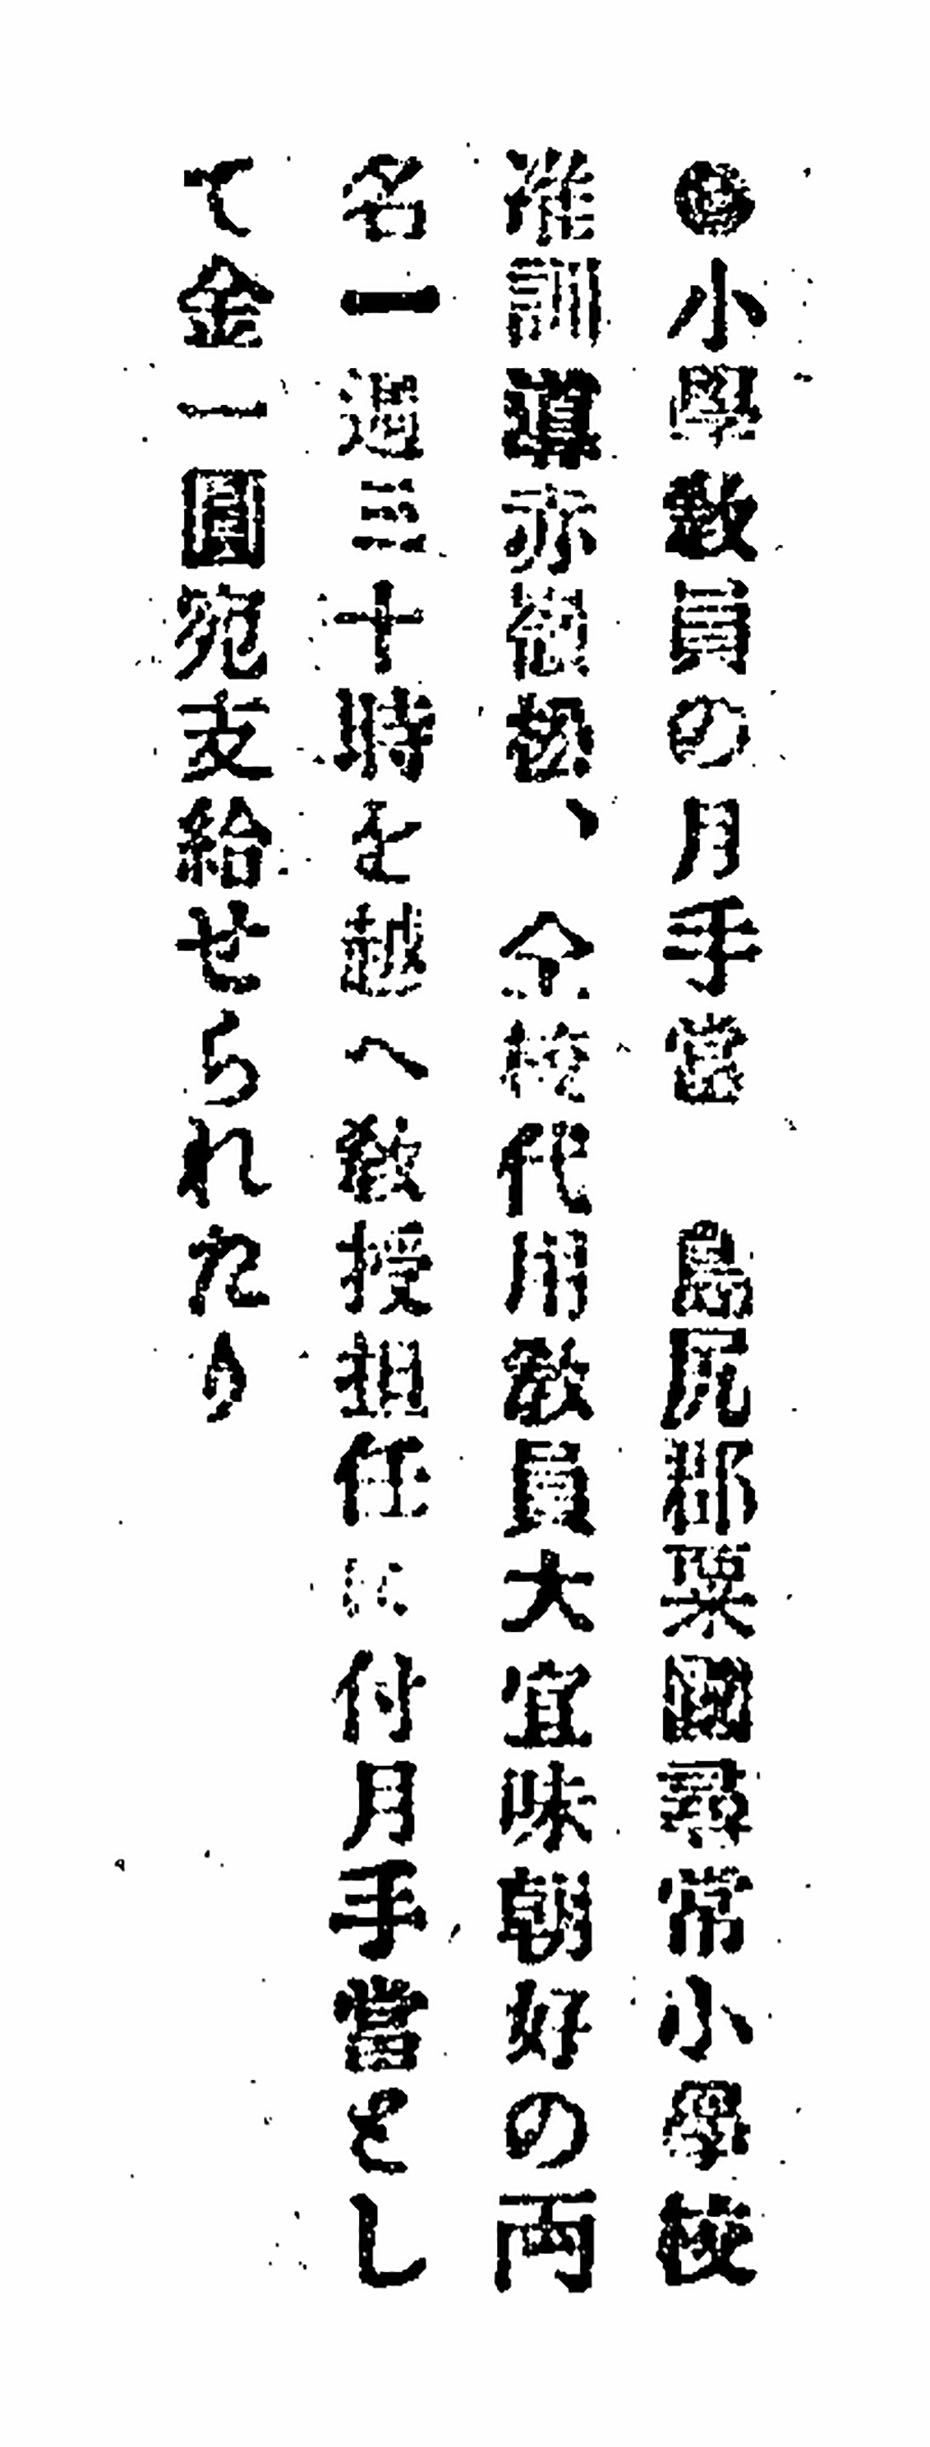 ◎小學敎員の月手當　島尻郡粟國尋常小學校
准訓導赤嶺松、仝校代用敎員大宜味朝好の両
名一週三十時を越へ敎授担任に付月手當とし
て金一圓宛支給せられたり